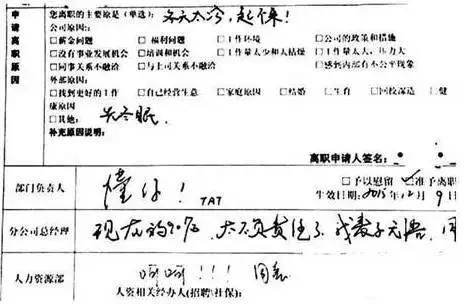 申请离职原因
您离职的主要原是(单选): 冬天太冷,起不来!
公司原因:
□薪金问题 □福利问题 □工作环境 □公司的政策和措施
□没有事业发展机会 □培训和机会 □工作量太少和人枯燥 □工作量太大,压力大
□同事关系不融洽 □与上司关系不融洽 □感到内部有不公平现象
外部原因:
□找到更好的工作 □自己经营生意 □家庭原因 □结婚 □生育 □回校深造 □健
康原因
□其他: 冬眠.
补充原因说明:
离职申请人签名:
部门负责人 懂你! TAT □予以慰留 准予离职
生效日期: 2015 12月9日
分公司总经理 现在的90后 太不负责任了 我表示无语
人力资源部 呵呵!!! 同意
人资相关经办人(招聘\社保):